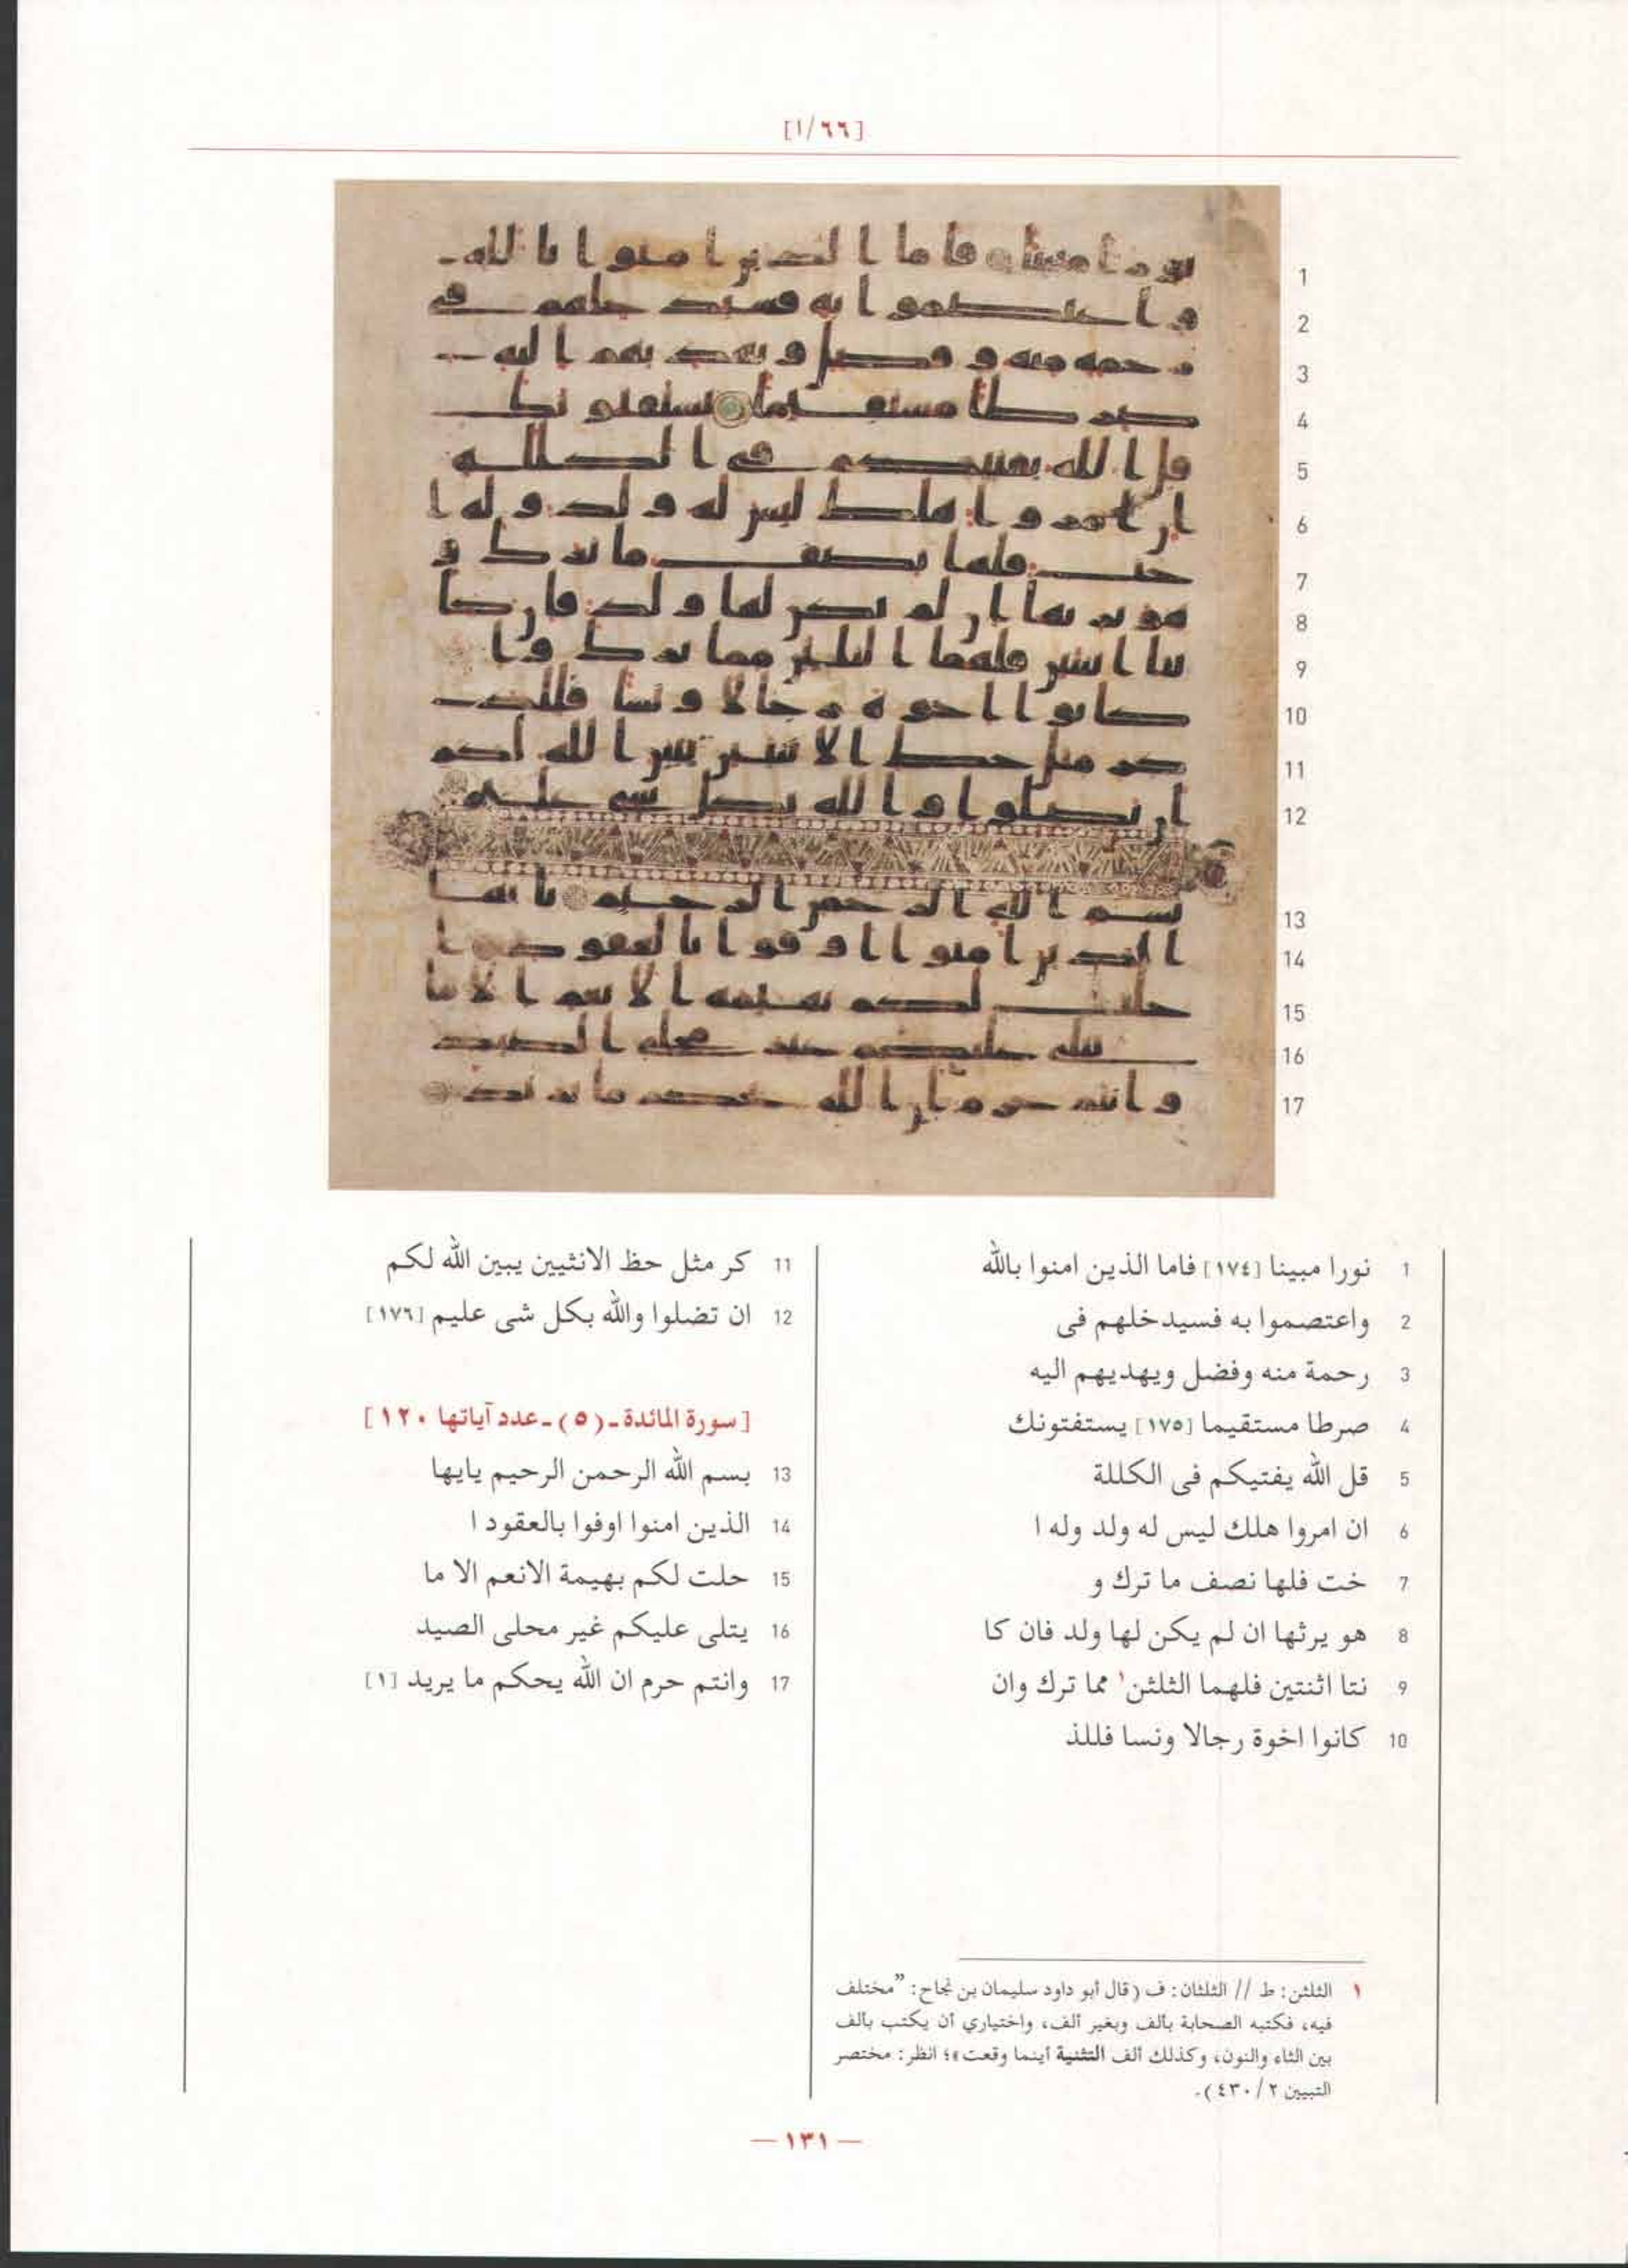 [١/٦٦]
1
2
3
4
5
6
7
8
9
10
11
12
13
14
15
16
17
1 نورا مبينا [١٧٤] فاما الذين امنوا بالله
2 واعتصموا به فسيدخلهم فى
3 رحمة منه وفضل ويهديهم اليه
4 صرطا مستقيما [١٧٥] يستفتونك
5 قل الله يفتيكم فى الكللة
6 ان امروا هلك ليس له ولد وله ا
7 خت فلها نصف ما ترك و
8 هو يرثها ان لم يكن لها ولد فان كا
9 نتا اثنتين فلهما الثلثن١ مما ترك وان
10 كانوا اخوة رجالا ونسا فللذ
11 كر مثل حظ الانثيين يبين الله لكم
12 ان تضلوا والله بكل شى عليم [١٧٦]
[سورة المائدة ـ (٥) ـ عدد آياتها ١٢٠]
13 بسم الله الرحمن الرحيم يايها
14 الذين امنوا اوفوا بالعقود ا
15 حلت لكم بهيمة الانعم الا ما
16 يتلى عليكم غير محلى الصيد
17 وانتم حرم ان الله يحكم ما يريد [١]
١ الثلثن: ط // الثلثان: ف (قال أبو داود سليمان بن نجاح: "مختلف
فيه، فكتبه الصحابة بألف وبغير ألف، واختياري أن يكتب بألف
بين الثاء والنون، وكذلك ألف التثنية أينما وقعت»؛ انظر: مختصر
التبيين ٢/ ٤٣٠).
— ١٣١ —